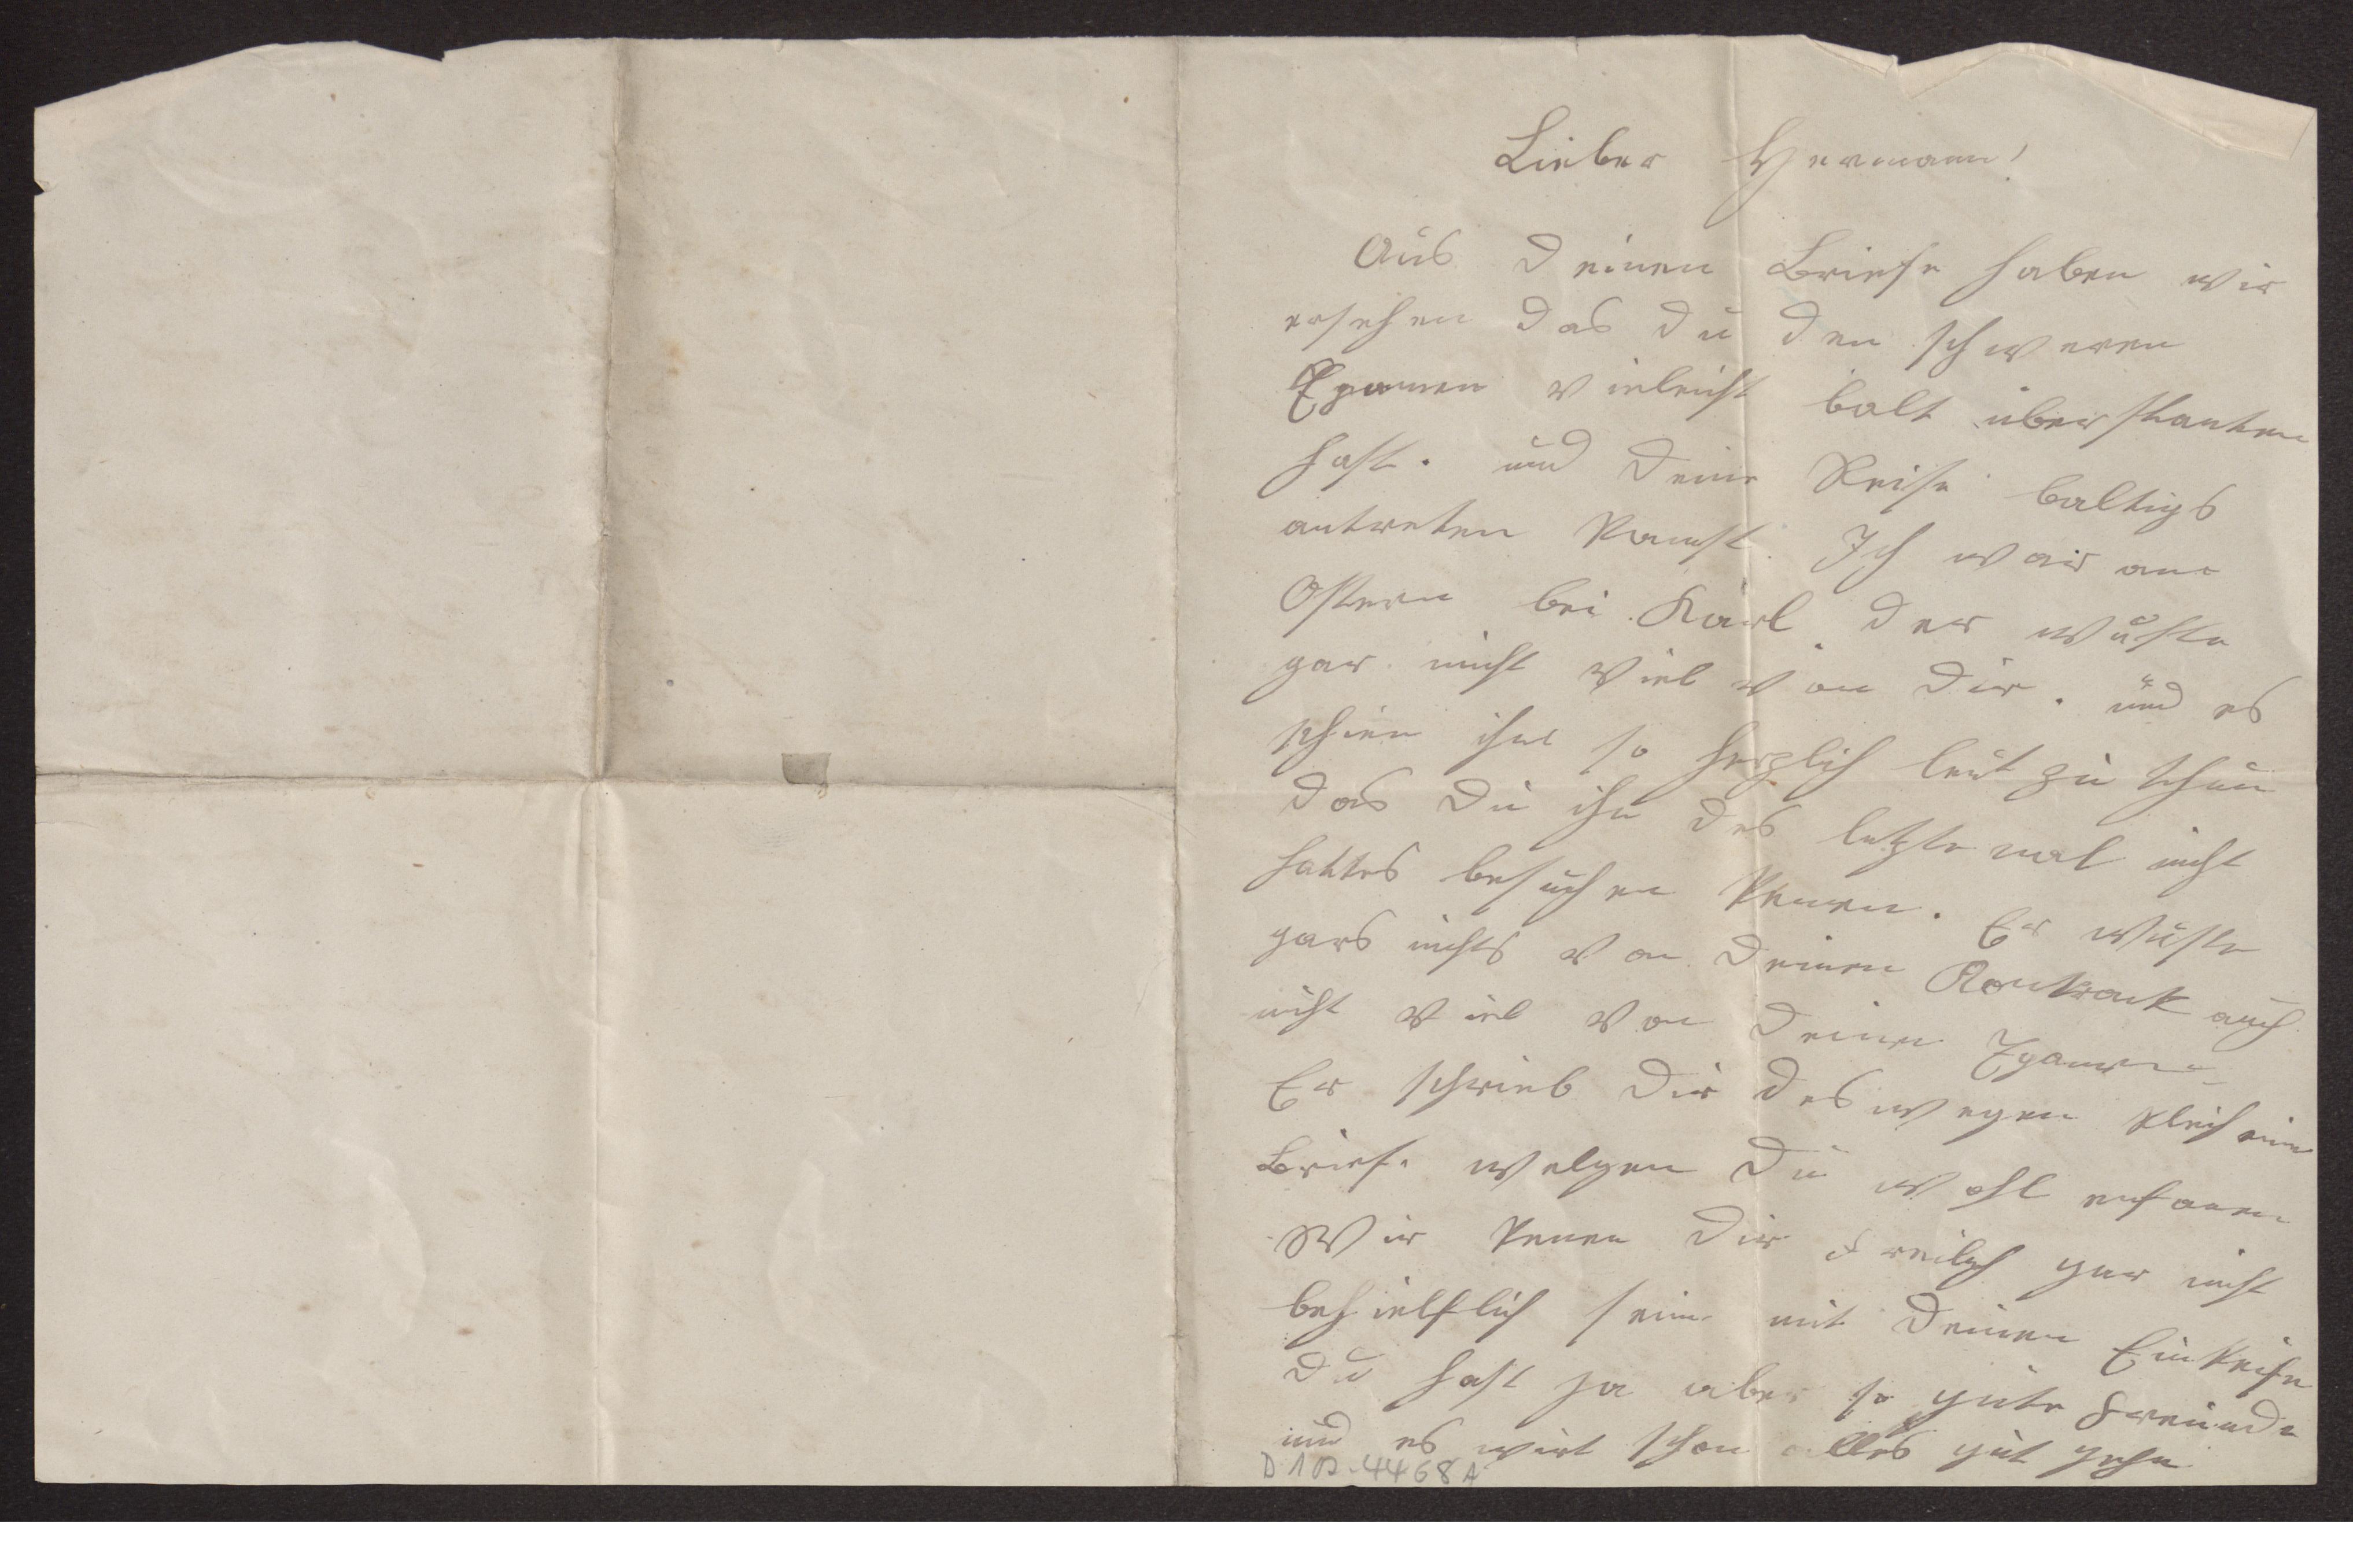 Lieber Hermann!
Aus Deinen Briefe haben wir
ersehen das du den schweren
Examen vieleicht balt überstanten
hast. und Deine Reise baltigs
antreten kanst. Ich war an
Ostern bei Karl der wuste
gar nicht viel von Dir. und es
schien ihm so herzlich leit zu thun
das Du ihn des letzte mal nicht
hattes besuchen kenen. Er wuste
gars nichts von Deinen Kontrack auch
nicht viel von Deinen Examen
Er schrieb Dir deswegen kleich einen
Brief. welgen Du wohl
Wir kenen Dir freilich gar nicht
behielflich sein mit Deinen Einkeife
Du hast ja aber so gute Freunde
und es wirt schon alles gut gehn
D 10-4468 A